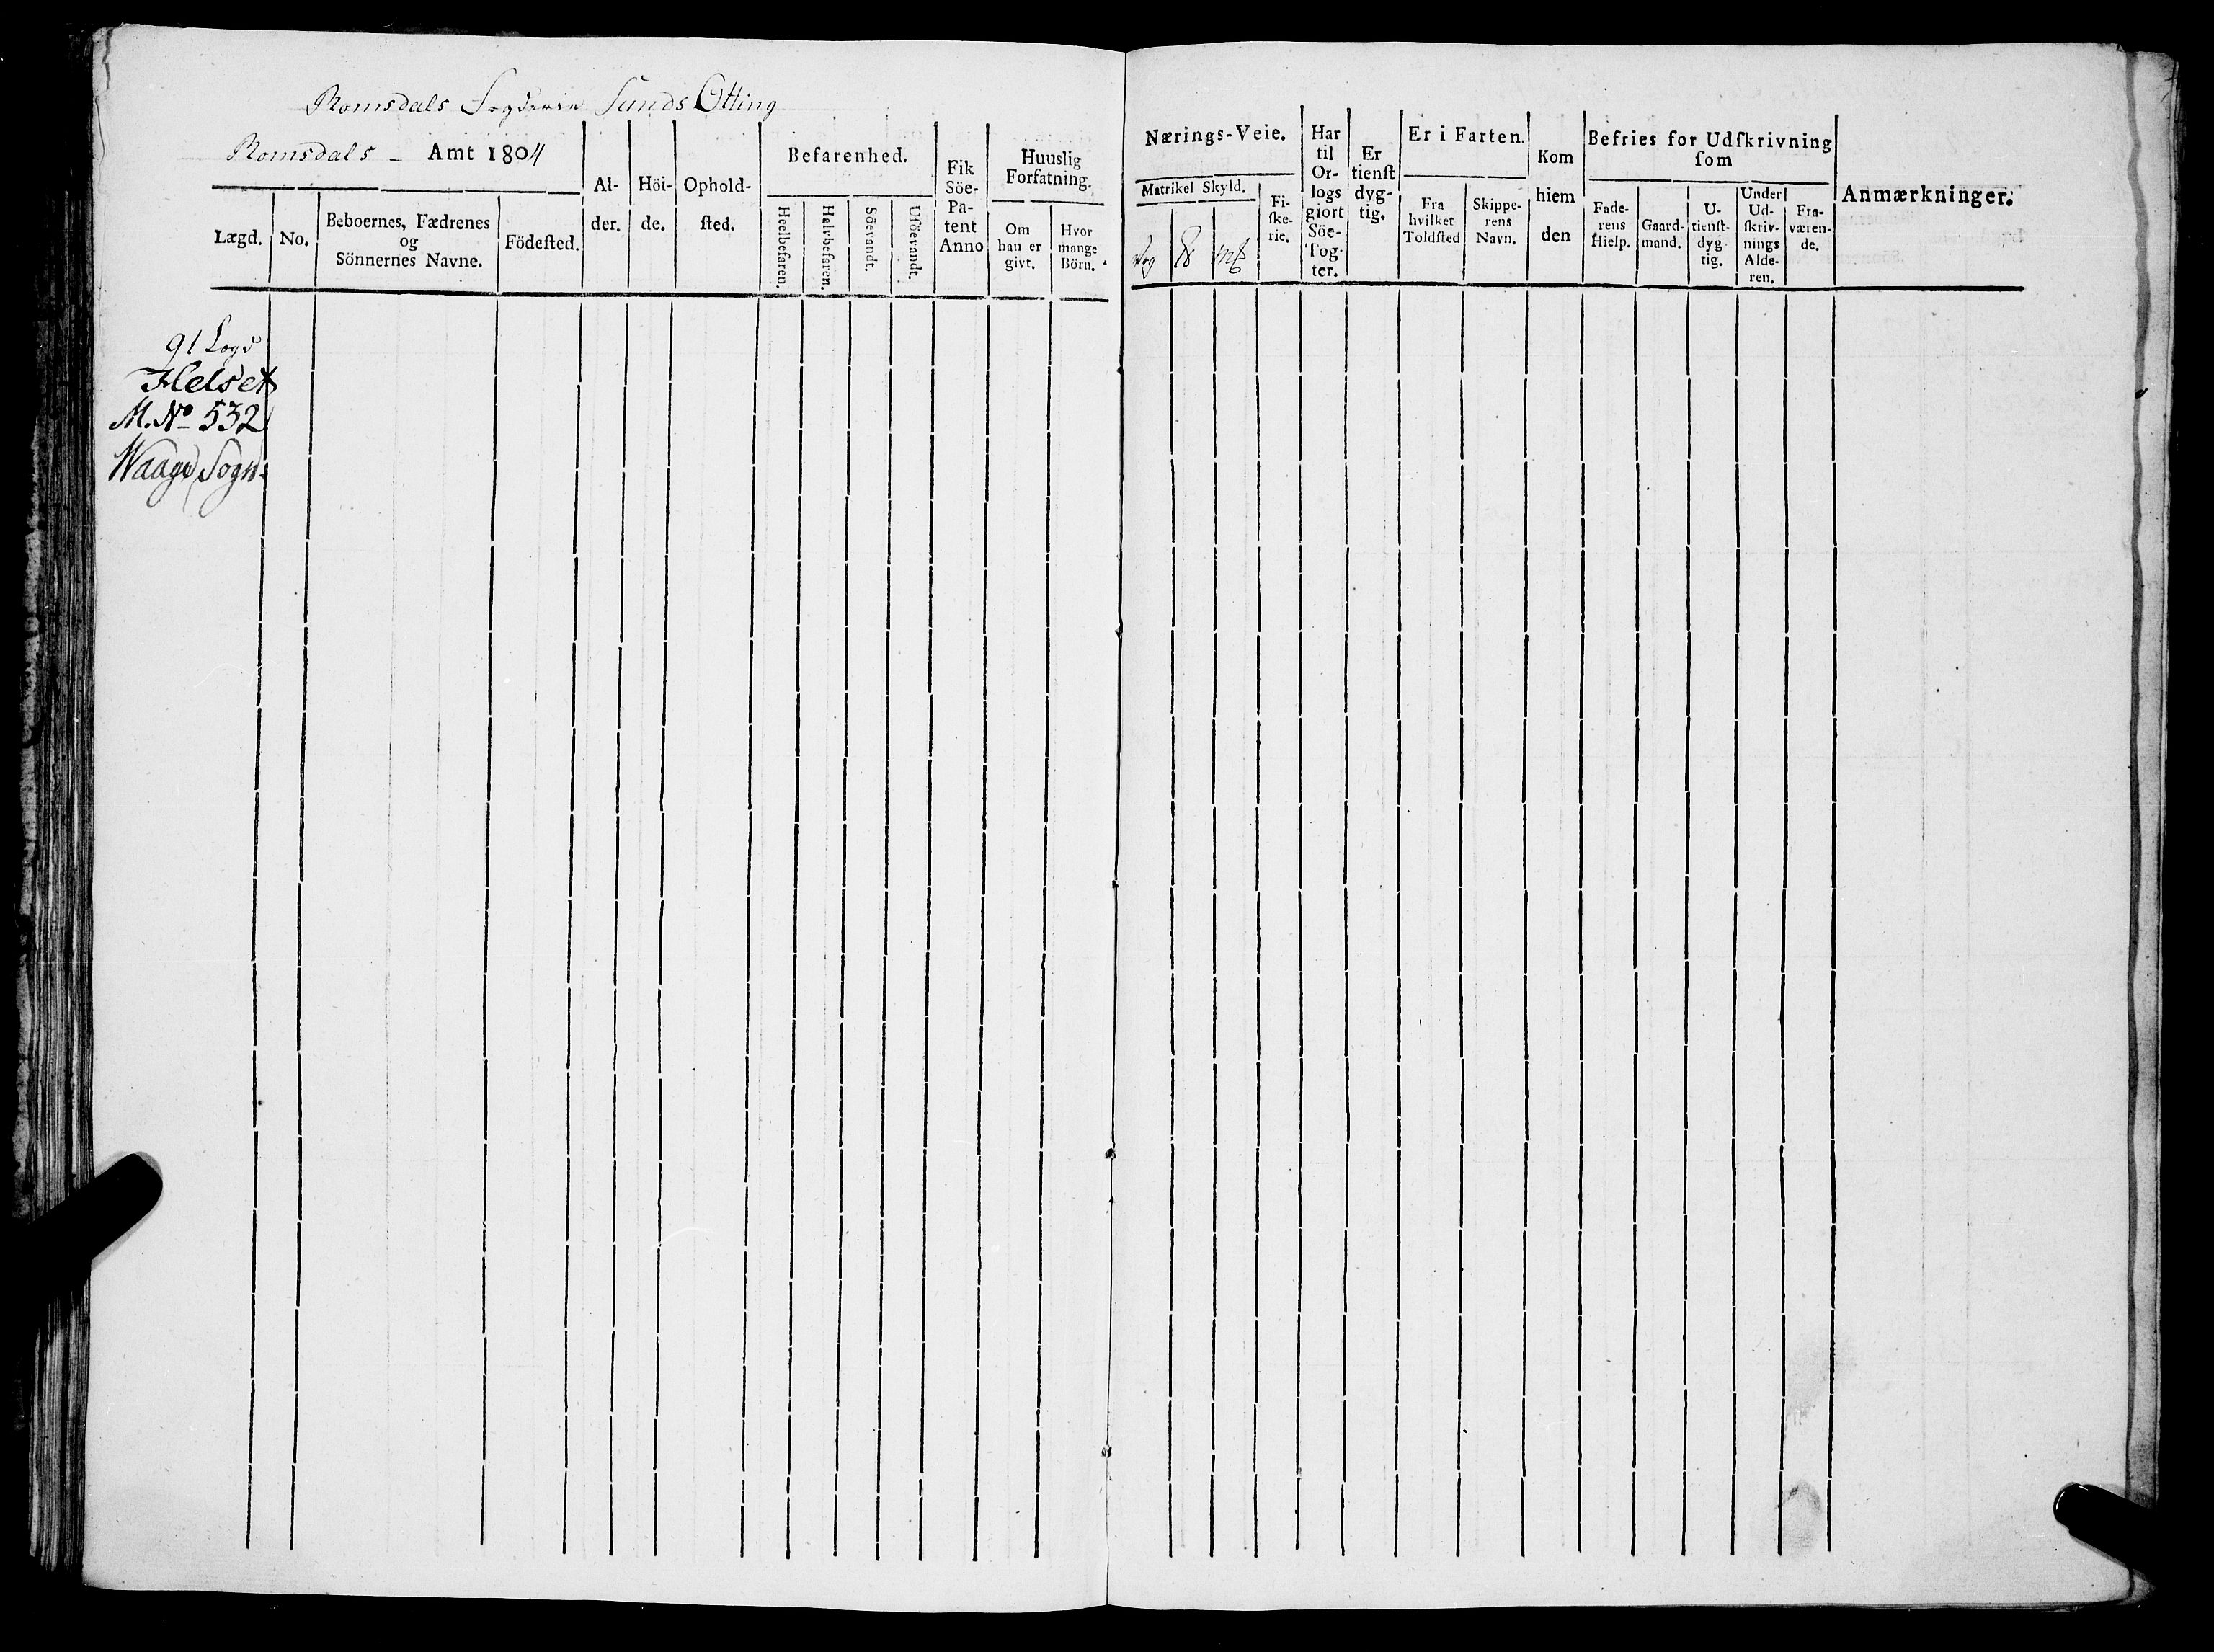 Romsdals Fogderie Sunds Otting
Romsdals - Amt 1804
Lægd.
No.
Beboernes, Fædrenes
og
Sönnernes Navne.
Födeſted.
Al-
der.
Höi-
de.
Ophold-
ſted.
Befarenhed.
Heelbefaren.
Halvbefaren.
Söevandt.
Uſöevandt.
Fik
Söe-
Pa-
tent
Anno
Huuslig
Forfatning.
Om
han er
givt.
Hvor
mange
Börn.
91 Lægd
Helset
M. No 532
Waage Sogn
Nærings-Veie.
Matrikel Skyld.
Fi-
ſke-
rie.
Har
til
Or-
logs
giort
Söe-
Tog-
ter.
Er
tienſt
dyg-
tig.
Er i Farten.
Fra
hvilket
Toldſted
Skippe-
rens
Navn.
Kom
hiem
den
Befries for Udſkrivning
ſom
Fade-
rens
Hielp.
Gaard-
mand.
U-
tienſt-
dyg-
tig.
Under
Ud-
ſkriv-
nings
Alde-
ren.
Fra-
væren-
de.
Anmærkninger.